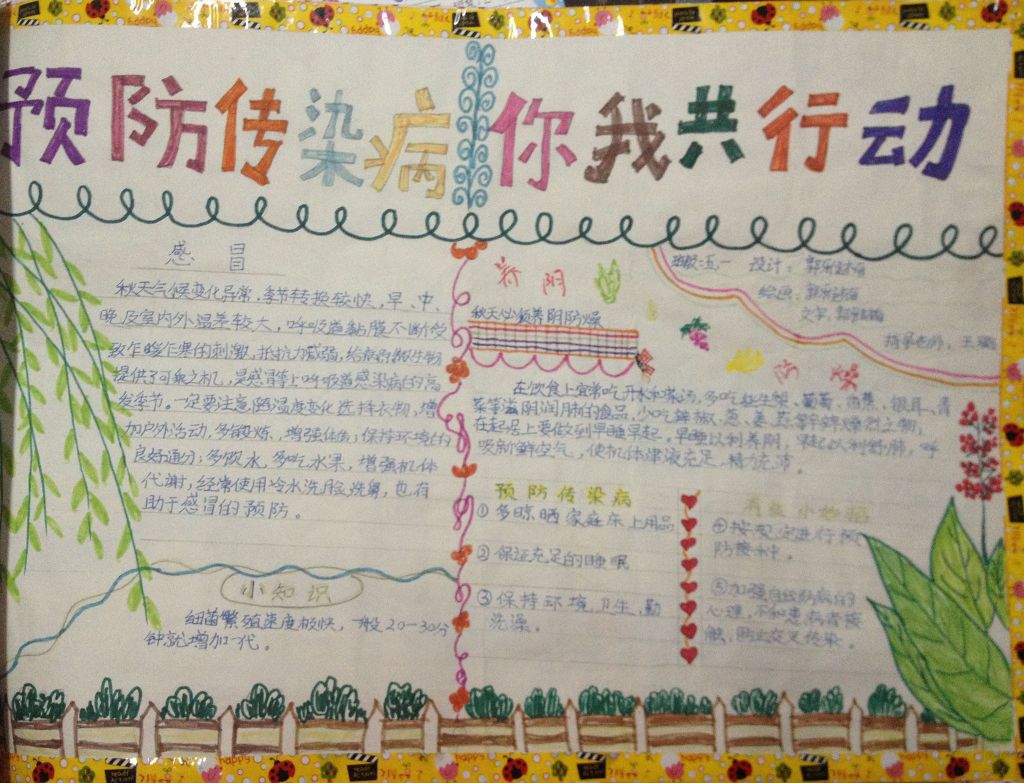 预防传染病 你我共行动
感冒
秋天气候变化异常,季节转换较快,早、中、
晚及室内外温差较大,呼吸道黏膜不断受
致乍暖乍寒的刺激,抵抗力减弱,给病原微生物
提供了可乘之机,是感冒等上呼吸道感染病的高
发季节。一定要注意随温度变化选择衣物,增
加户外活动,多锻炼、增强体质;保持环境的
良好通分;多饮水,多吃水果,增强机体
代谢,经常使用冷水洗脸、洗鼻,也有
助于感冒的预防。
小知识
细菌繁殖速度极快,一般20-30分
钟就增加一代。
养阴
防燥
班级:五.一 设计:
绘画:
文字:
指导老师:王
秋天必须养阴防燥
在饮食上宜常吃开水和菜汤,多吃
葡萄、香蕉、银耳、青
菜等滋阴润肺的食品,少吃辣椒、葱、姜、蒜等辛辣燥烈之物,
在起居上要做到早睡早起。早睡以利养阴,早起以利舒肺,呼
吸新鲜空气,使机体津液充足,精力充沛。
预防传染病
①多晾晒家庭床上用品
②保证充足的睡眠
③保持环境卫生,勤
洗澡。
有效小妙招
④按规定进行预
防接种。
⑤加强自我防病的
心理,不和患病者接
触,防止交叉传染。